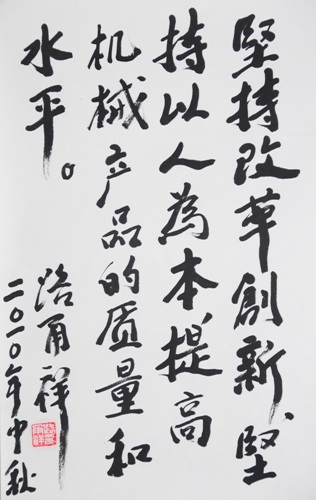 坚持改革創新、堅
持以人為本提高
机械产品的质量和
水平。
路甬祥
二〇一〇年中秋